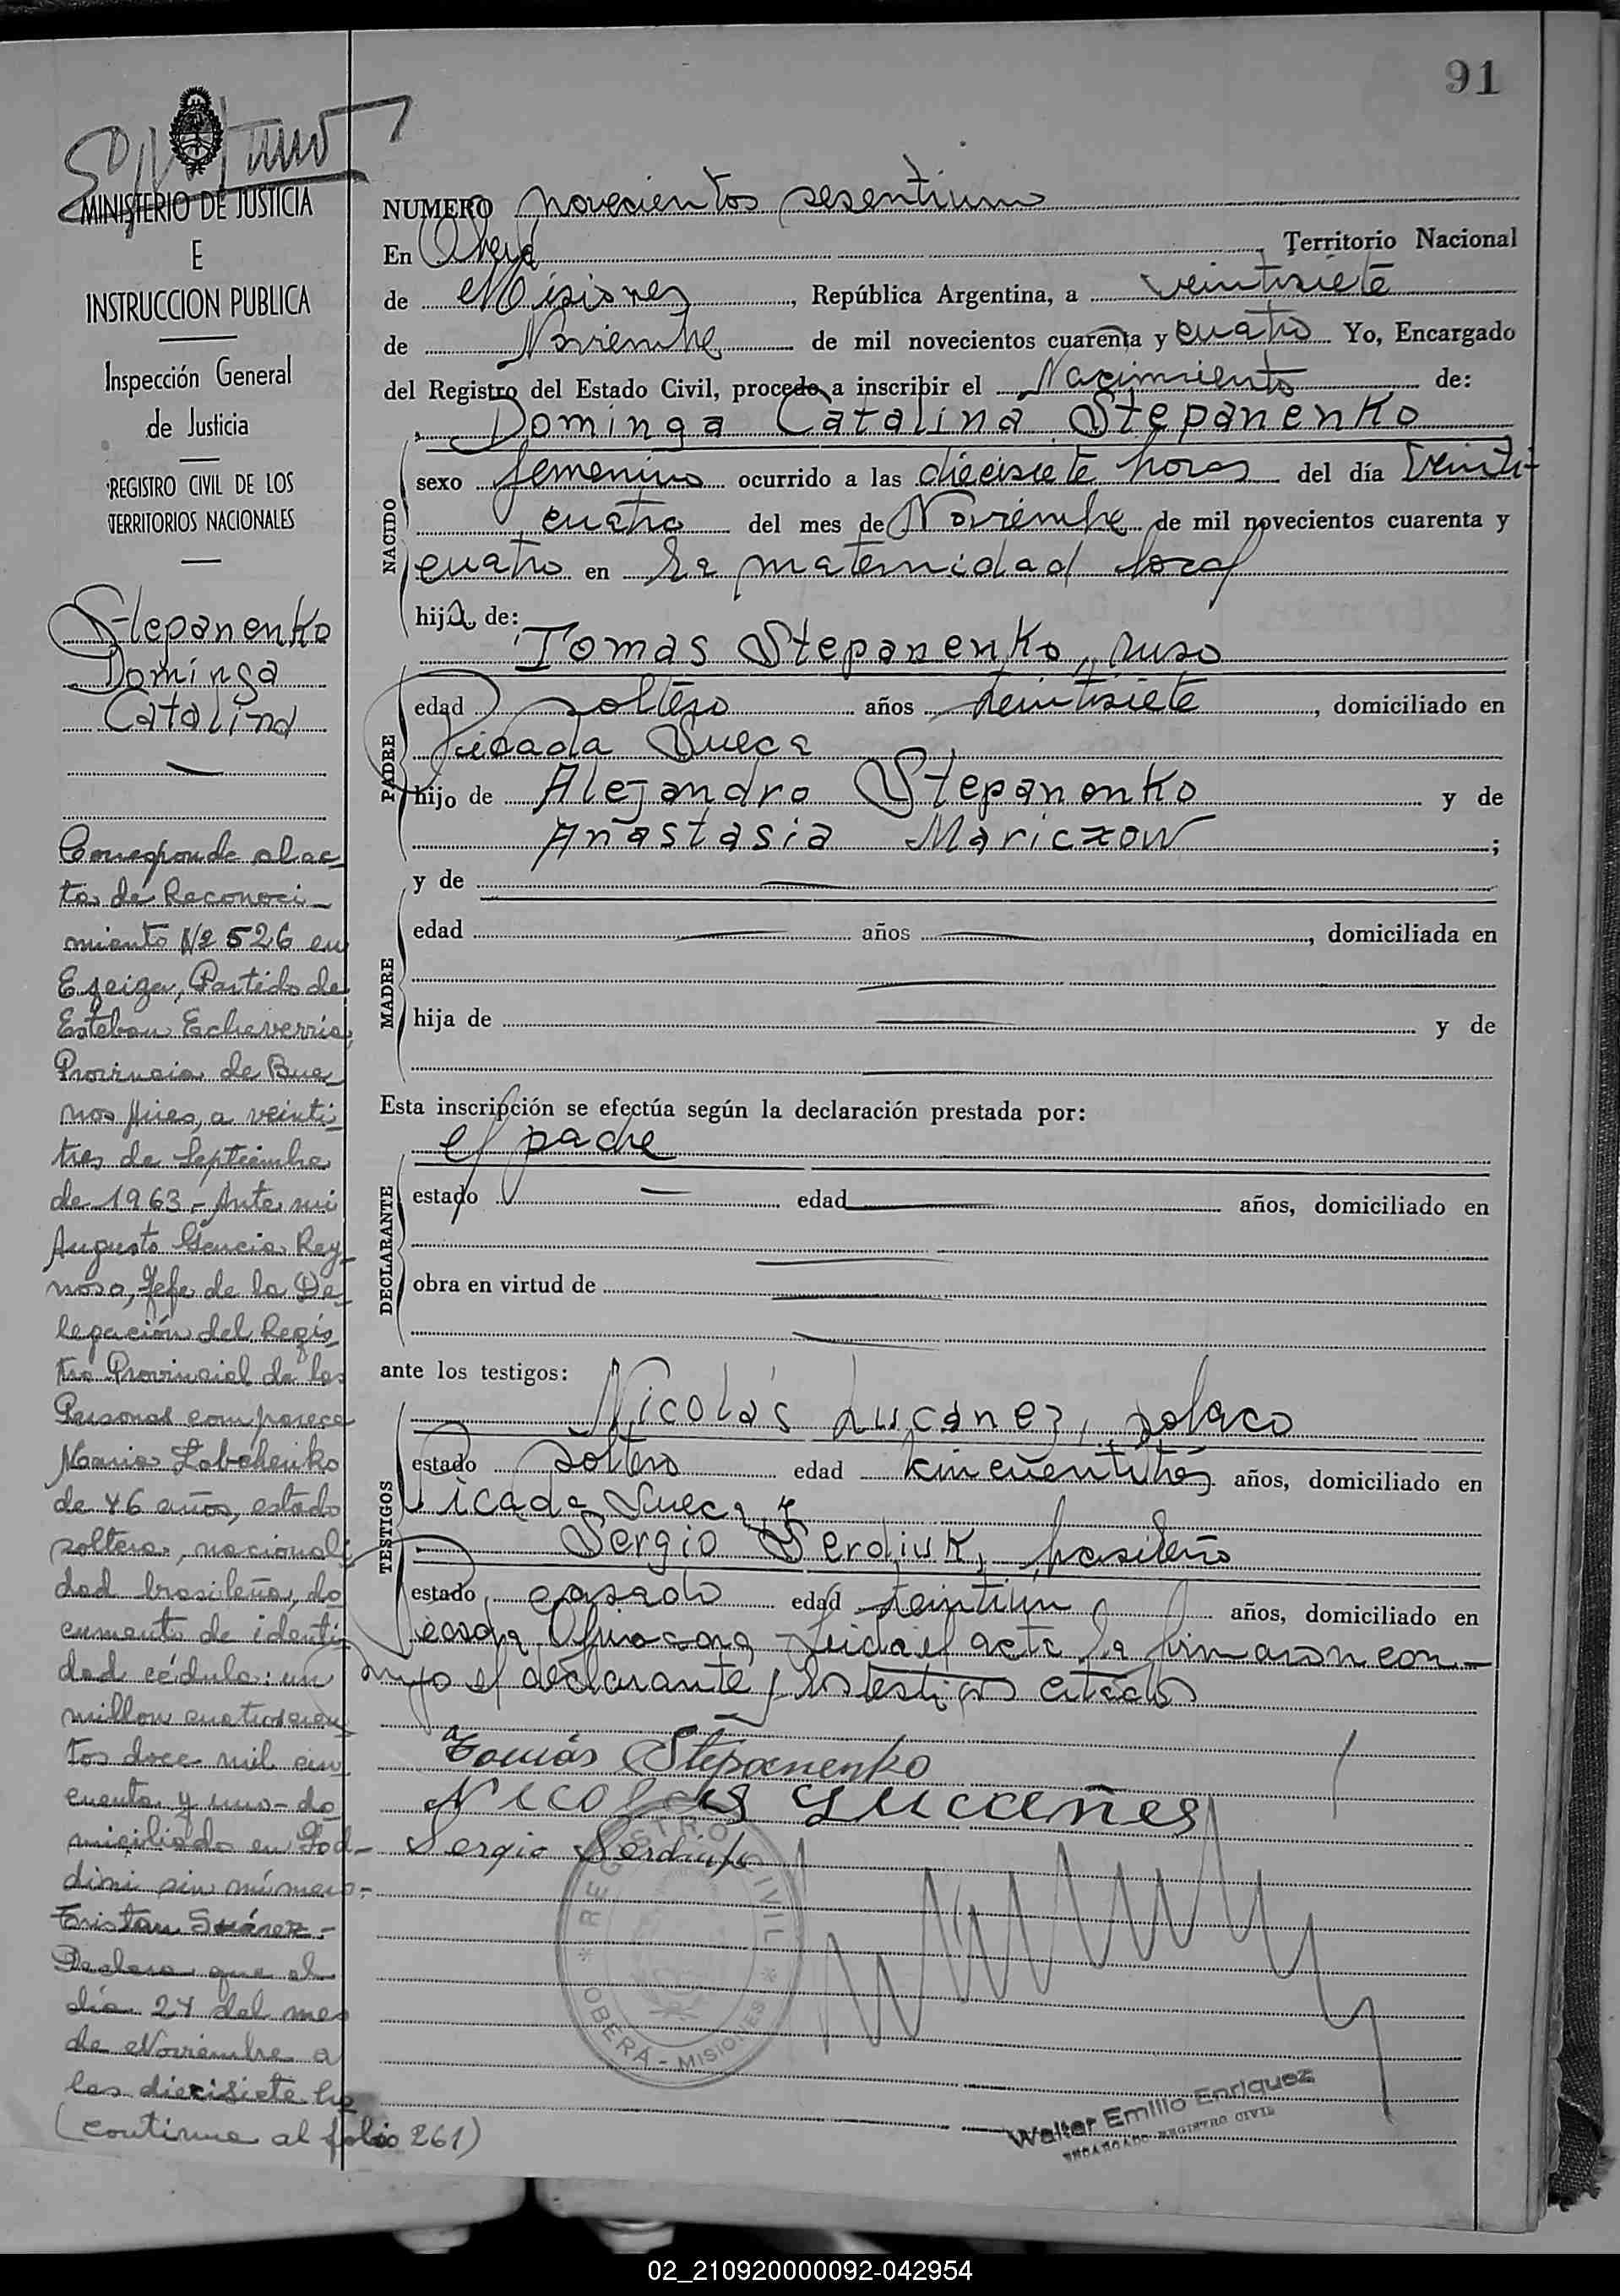 91
MINISTERIO DE JUSTICIA
E
INSTRUCCION PUBLICA
Inspección General
de Justicia
REGISTRO CIVIL DE LOS
TERRITORIOS NACIONALES
Stepanenko
Dominga
Catalina
Corresponde al ac-
ta de Reconoci-
miento Nº 526 en
Ezeiza, Partido de
Esteban Echeverria,
Provincia de Bue-
nos Aires, a veinti-
tres de Septiembre
de 1963.- Ante mi
Augusto Garcia Rey-
noso, Jefe de la De-
legación del Regis-
tro Provincial de las
Personas comparece
Maria
de 46 años, estado
soltera, nacionali-
dad brasileña, do-
cumento de identi-
dad cédula: un
millon cuatrocien-
tos doce mil cin-
cuenta y uno- do-
miciliada en
sin número-
Tristan Suárez.-
Declara que el
día 24 del mes
de Noviembre a
las diecisiete ho
(continua al folio 261)
NUMERO novecientos sesentiuno
En Oberá, Territorio Nacional
de Misiones, República Argentina, a veintisiete
de Noviembre de mil novecientos cuarenta y cuatro Yo, Encargado
del Registro del Estado Civil, procedo a inscribir el Nacimiento de:
Dominga Catalina Stepanenko
NACIDO
sexo femenino ocurrido a las diecisiete horas del día veinti-
cuatro del mes de Noviembre de mil novecientos cuarenta y
cuatro en la maternidad local
hija de:
Tomas Stepanenko, ruso
PADRE
edad soltero años treintisiete, domiciliado en
Picada Sueca
hijo de Alejandro Stepanenko y de
Anastasia Mariczow;
y de
MADRE
edad años, domiciliada en
hija de y de
Esta inscripción se efectúa según la declaración prestada por:
el padre
DECLARANTE
estado edad años, domiciliado en
obra en virtud de
ante los testigos:
Nicolás Lucanez, polaco
TESTIGOS
estado soltero edad cincuentitrés años, domiciliado en
Picada Sueca y
Sergio Serdiuk, brasileño
estado casado edad treintiun años, domiciliado en
Picada Leida el acta la firmaron con-
migo el declarante y los testigos citados
Tomás Stepanenko
Nicolas Lucañes
Sergio Serdiuk
REGISTRO CIVIL
OBERÁ - MISIONES
Walter Emilio Enriquez
ENCARGADO REGISTRO CIVIL
02_210920000092-042954